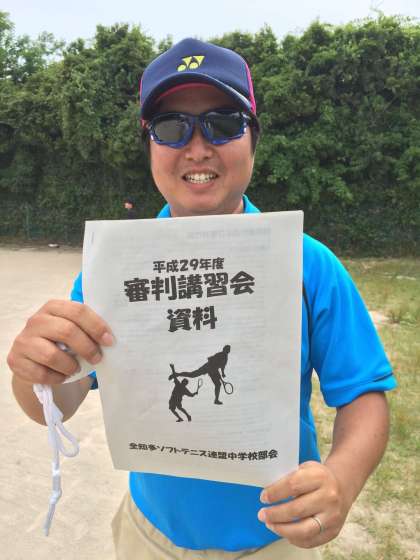 平成29年度
審判講習会
資料
全知多ソフトテニス連盟中学校部会